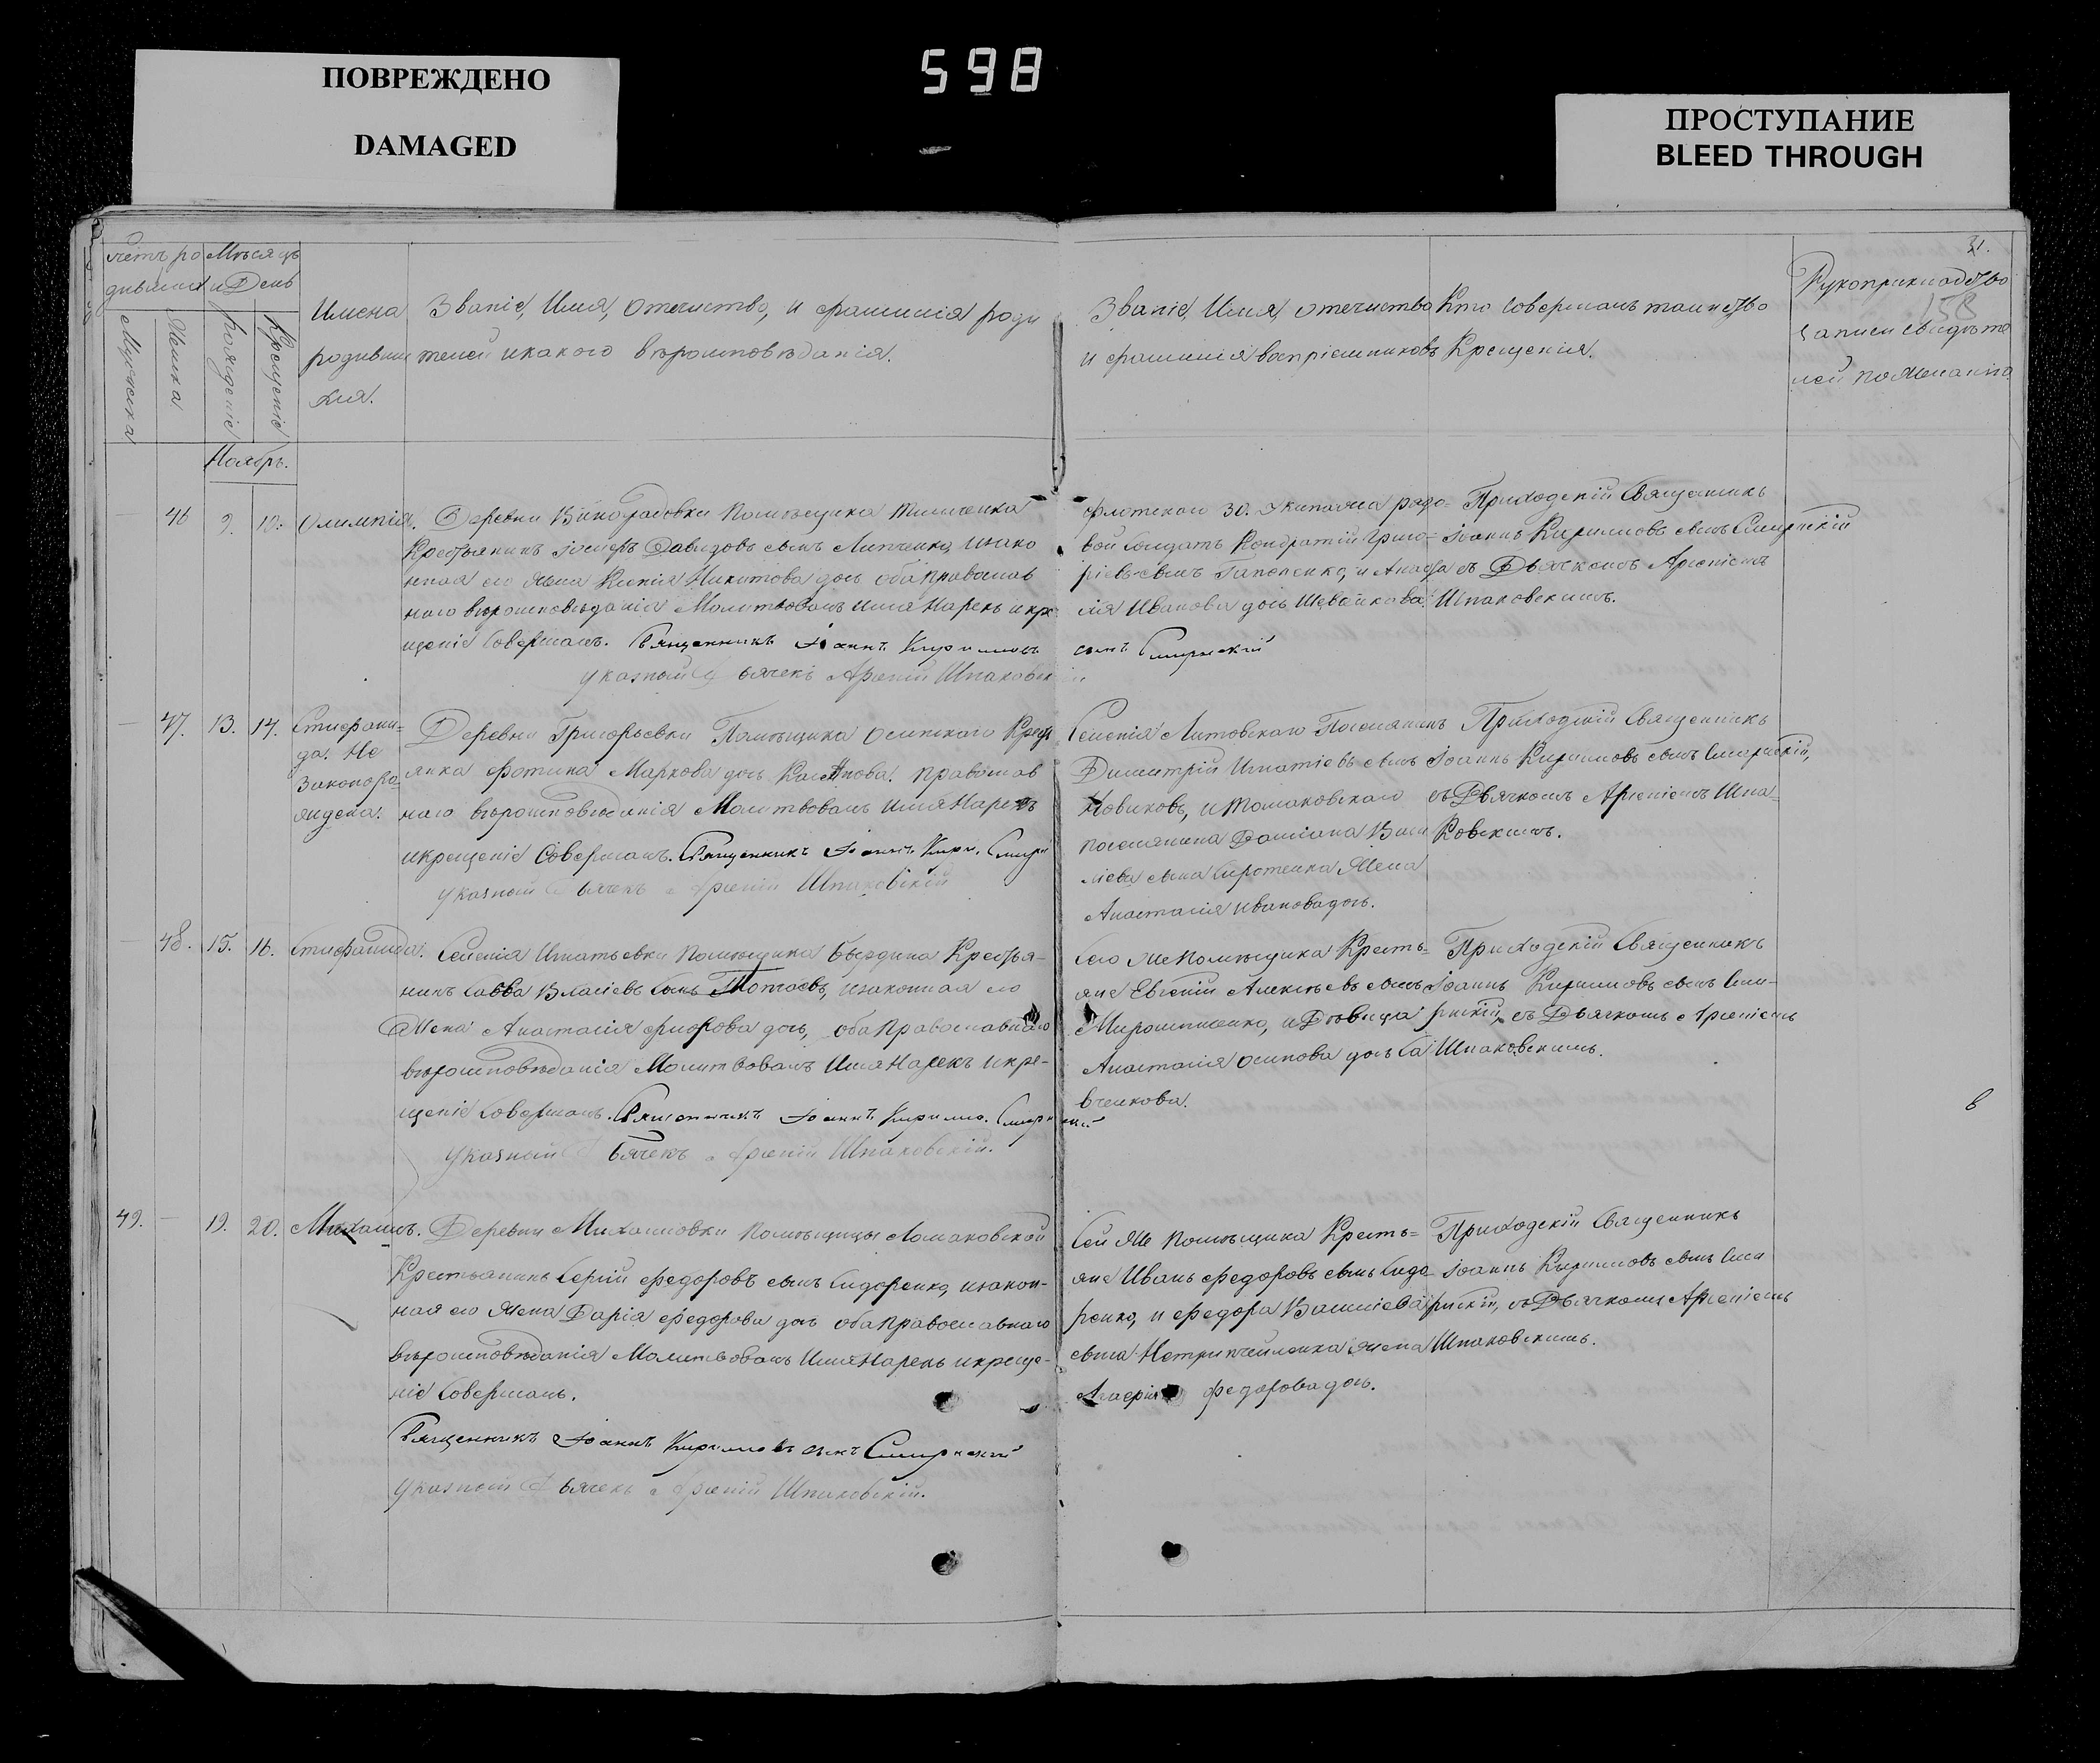 ПОВРЕЖДЕНО
DAMAGED
598
ПРОСТУПАНИЕ
BLEED THROUGH
31.
158
Счетъ ро
дившихся
Мѣсяцъ
и День
Мужеска
Женска
Рожденіе
Крещеніе
Имена
родивши
хся.
Званіе, Имя, Отечество, и фамилія роди
телей и какого вѣроисповѣданія.
Званіе, Имя, отечество
и фамилія воспріемниковъ
Кто совершалъ таинство
Крещенія.
Рукоприкладство
записи свидѣте
лей по желанію
Ноябрь.
46 9. 10. Олимпія.
Деревни Виноградовки помѣщика
Крестьянинъ Іосифъ Давидовъ сынъ Липченко, и зако
нная его жена Ксенія Никитова дочь оба православ
наго вѣроисповѣданія Молитвовалъ имя Нарекъ и кре
щеніе совершалъ. Священникъ Іоаннъ Кирилловъ
сынъ Смирнскій
указный Дьячекъ Арсеній Шпаковскій
флотскаго 30. Экипажа рядо-
вой солдатъ Кондратій Григо-
ріевъ сынъ Гапоненко, и Анаста
сія Иванова дочь Шевейкова.
Приходскій Священникъ
Іоаннъ Кирилловъ сынъ Смирнскій
съ Дьячкомъ Арсеніемъ
Шпаковскимъ.
47. 13. 14. Стифани-
да. Не
законоро-
ждена.
Деревни Григорьевки Помѣщика Осипскаго Крест
янка Фотина Маркова дочь православ
наго вѣроисповѣданія Молитвовалъ имя Нарекъ
и крещеніе совершалъ. Священникъ Іоаннъ Кири. Смирн
указный Дьячекъ Арсеній Шпаковскій
Селенія Литовскаго Поселянинъ
Димитрій Игнатіевъ сынъ
Новиковъ, и Томаковскаго
поселянина Даміана Васи
ліева сына Сиротенка Жена
Анастасія Иванова дочь.
Приходскій Священникъ
Іоаннъ Кирилловъ сынъ Смирнскій,
съ Дьячкомъ Арсеніемъ Шпа-
ковскимъ.
48. 15. 16. Стифанида.
Селенія Игнатьевки помѣщика Крестья-
нинъ Савва Власіевъ сынъ и законная его
Жена Анастасія Фиорова дочь, оба Православнаго
вѣроисповѣданія Молитвовалъ Имя Нарекъ и кре-
щеніе совершалъ. Священникъ Іоаннъ Кирилло. Смирнскій
Указный Дьячекъ Арсеній Шпаковскій.
Сего же Помѣщика Кресть-
яне Евгеній Алексѣевъ сынъ
Мирошниченко, и Дѣвица
Анастасія Осипова дочь Са
вченкова.
Приходскій Священникъ
Іоаннъ Кирилловъ сынъ Сми-
рнскій, съ Дьячкомъ Арсеніемъ
Шпаковскимъ.
в
49. 19. 20. Михаилъ.
Деревни Михайловки помѣщицы Ломаковской
Крестьянинъ Сергій Федоровъ сынъ Сидоренко, и закон-
ная его жена Дарія Федорова дочь оба православнаго
вѣроисповѣданія Молитвовалъ Имя Нарекъ и креще-
ніе совершалъ.
Священникъ Іоаннъ Кирилловъ сынъ Смирнскій
Указный Дьячекъ Арсеній Шпаковскій.
Сей же помѣщика Кресть-
яне Иванъ Федоровъ сынъ Сидо-
ренко, и Федора Василіева
сына жена
Федорова дочь.
Приходскій Священникъ
Іоаннъ Кирилловъ сынъ Сми
рнскій, съ Дьячкомъ Арсеніемъ
Шпаковскимъ.